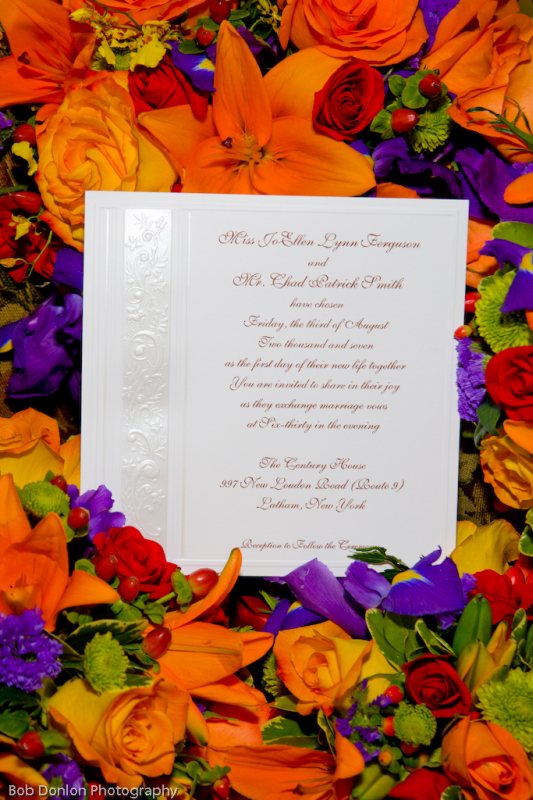 Miss JoEllen Lynn Ferguson
and
Mr. Chad Patrick Smith
have chosen
Friday, the third of August
Two thousand and seven
as the first day of their new life together
You are invited to share in their joy
as they exchange marriage vows
at Six-thirty in the evening
The Century House
997 New Loudon Road (Route 9)
Latham, New York
Reception to Follow the
Bob Donlon Photography